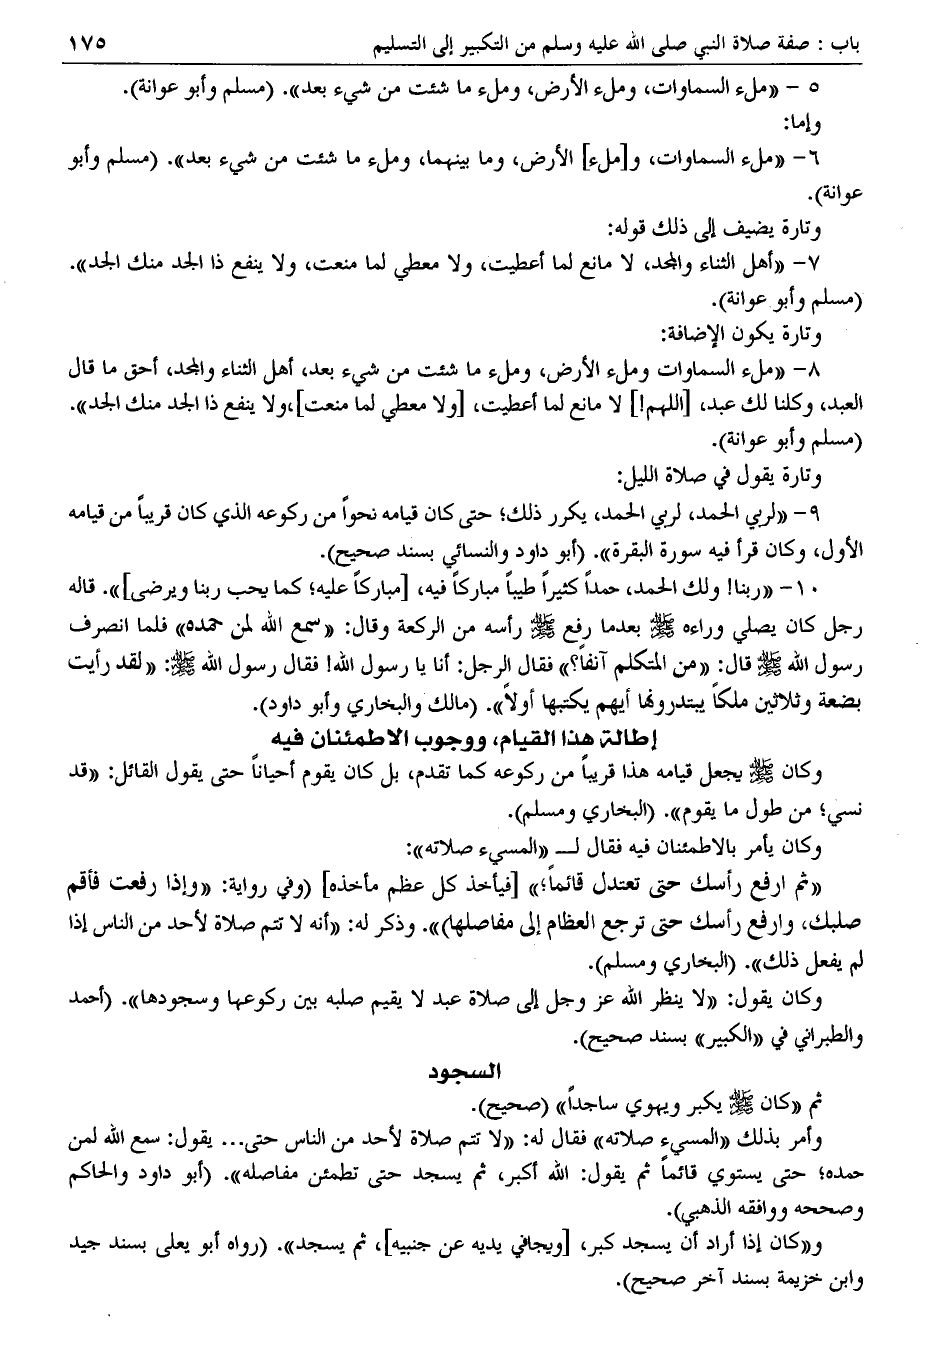 باب : صفة صلاة النبي صلى الله عليه وسلم من التكبير إلى التسليم ١٧٥
٥ – «ملء السماوات، وملء الأرض، وملء ما شئت من شيء بعد». (مسلم وأبو عوانة).
وإما:
٦– «ملء السماوات، و[ملء] الأرض، وما بينهما، وملء ما شئت من شيء بعد». (مسلم وأبو
عوانة).
وتارة يضيف إلى ذلك قوله:
٧– «أهل الثناء والمجد، لا مانع لما أعطيت، ولا معطي لما منعت، ولا ينفع ذا الجد منك الجد».
(مسلم وأبو عوانة).
وتارة يكون الإضافة:
٨– «ملء السماوات وملء الأرض، وملء ما شئت من شيء بعد، أهل الثناء والمجد، أحق ما قال
العبد، وكلنا لك عبد، [اللهم!] لا مانع لما أعطيت، [ولا معطي لما منعت]،ولا ينفع ذا الجد منك الجد».
(مسلم وأبو عوانة).
وتارة يقول في صلاة الليل:
٩– «لربي الحمد، لربي الحمد، يكرر ذلك؛ حتى كان قيامه نحواً من ركوعه الذي كان قريباً من قيامه
الأول، وكان قرأ فيه سورة البقرة». (أبو داود والنسائي بسند صحيح).
١٠– «ربنا! ولك الحمد، حمداً كثيراً طيباً مباركاً فيه، [مباركاً عليه؛ كما يحب ربنا ويرضى]». قاله
رجل كان يصلي وراءه ﷺ بعدما رفع ﷺ رأسه من الركعة وقال: «سمع الله لمن حمده» فلما انصرف
رسول الله ﷺ قال: «من المتكلم آنفاً؟» فقال الرجل: أنا يا رسول الله! فقال رسول الله ﷺ: «لقد رأيت
بضعة وثلاثين ملكاً يبتدرونها أيهم يكتبها أولاً». (مالك والبخاري وأبو داود).
إطالة هذا القيام، ووجوب الاطمئنان فيه
وكان ﷺ يجعل قيامه هذا قريباً من ركوعه كما تقدم، بل كان يقوم أحياناً حتى يقول القائل: «قد
نسي؛ من طول ما يقوم». (البخاري ومسلم).
وكان يأمر بالاطمئنان فيه فقال لـــ «المسيء صلاته»:
«ثم ارفع رأسك حتى تعتدل قائماً؛» [فيأخذ كل عظم مأخذه] (وفي رواية: «وإذا رفعت فأقم
صلبك، وارفع رأسك حتى ترجع العظام إلى مفاصلها)». وذكر له: «أنه لا تتم صلاة لأحد من الناس إذا
لم يفعل ذلك». (البخاري ومسلم).
وكان يقول: «لا ينظر الله عز وجل إلى صلاة عبد لا يقيم صلبه بين ركوعها وسجودها». (أحمد
والطبراني في «الكبير» بسند صحيح).
السجود
ثم «كان ﷺ يكبر ويهوي ساجداً» (صحيح).
وأمر بذلك «المسيء صلاته» فقال له: «لا تتم صلاة لأحد من الناس حتى... يقول: سمع الله لمن
حمده؛ حتى يستوي قائماً ثم يقول: الله أكبر، ثم يسجد حتى تطمئن مفاصله». (أبو داود والحاكم
وصححه ووافقه الذهبي).
و«كان إذا أراد أن يسجد كبر، [ويجافي يديه عن جنبيه]، ثم يسجد». (رواه أبو يعلى بسند جيد
وابن خزيمة بسند آخر صحيح).